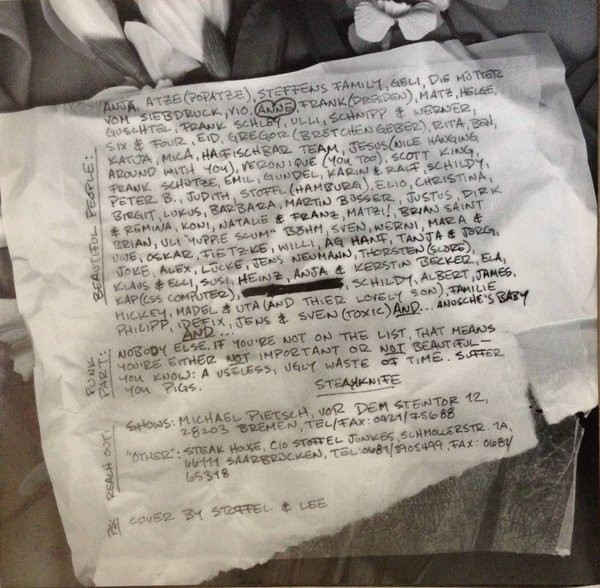 BEAUTIFUL PEOPLE:
ANJA, ATZE (POPATZE), STEFFENS FAMILY, GELI, DIE MÜTTER
VOM SIEBDRUCK, VIO, ANNE FRANK (DRESDEN), MATZ, HELGE,
GUSCHTEL, FRANK SCHLEY, ULLI, SCHNIPP & WERNER,
SIX & FOUR, EID, GREGOR (BRETCHENGEBER), RITA, BEN,
KATIJA, MICA, HAIFISCHBAR TEAM, JESUS (NICE HANGING
AROUND WITH YOU), VERONIQUE (YOU TOO), SCOTT KING,
FRANK SCHÜTZE, EMIL, GUNDEL, KARIN & RALF, SCHILDY,
PETER B., JUDITH, STOFFL (HAMBURG), ELIO, CHRISTINA,
BIRGIT, LUKUS, BARBARA, MARTIN BÜSSER, JUSTUS, DIRK
& REMINA, KONI, NATALIE & FRANZ, MATZI!, BRIAN SAINT
& BRIAN, ULI "YUPPIE SCUM" BÖHM, SVEN, WERNI, MARA &
UWE, OSKAR, FIETZKE, WILLI, AG HANF, TANJA & JÖRG,
JOKE, ALEX, LÜCKE, JENS NEUMANN, THORSTEN (SCORE),
KLAUS & ELLI, SUSI, HEINZ, ANJA & KERSTIN BECKER, ELA,
KAP (CSS COMPUTER), SCHILDY, ALBERT, JAMES,
MICKEY, MADEL & UTA (AND THIER LOVELY SON), FAMILIE
PHILIPP, IDEFIX, JENS & SVEN (TOXIC) AND... ANUSCHE'S BABY
AND...
PUNK PART:
NOBODY ELSE. IF YOU'RE NOT ON THE LIST, THAT MEANS
YOU'RE EITHER NOT IMPORTANT OR NOT BEAUTIFUL—
YOU KNOW: A USELESS, UGLY WASTE OF TIME. SUFFER
YOU PIGS.
STEAKKNIFE
REACH OUT:
SHOWS: MICHAEL PIETSCH, VOR DEM STEINTOR 12,
28203 BREMEN, TEL/FAX: 0421/75688
"OTHER": STEAK HOUSE, C/O STOFFEL JUNKES, SCHMOLLERSTR. 1A,
66111 SAARBRÜCKEN, TEL: 0681/3905499, FAX: 0681/
65318
COVER BY STOFFEL & LEE